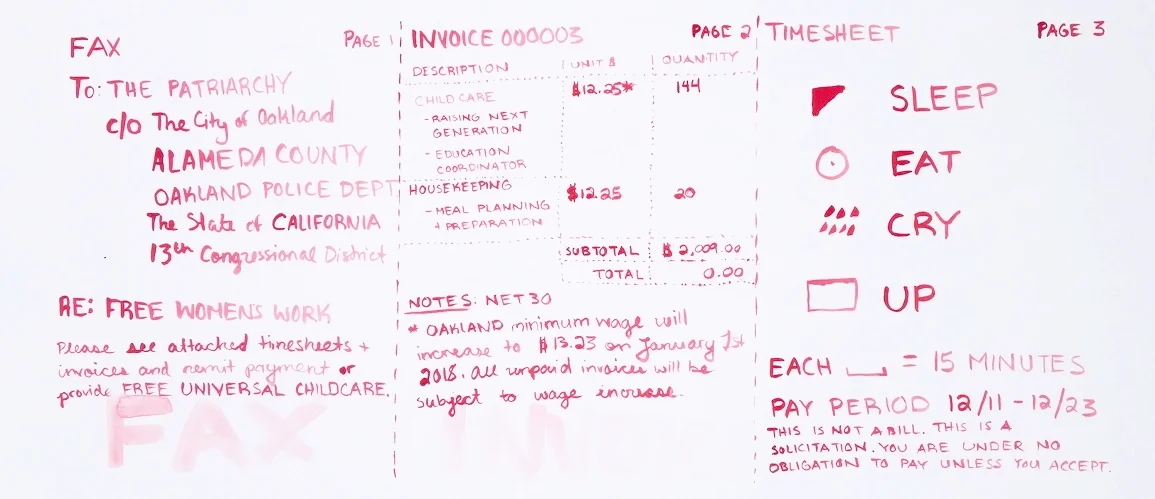 FAX
PAGE 1
To: THE PATRIARCHY
c/o The City of Oakland
ALAMEDA COUNTY
OAKLAND POLICE DEPT
The State of CALIFORNIA
13th Congressional District
RE: FREE WOMENS WORK
Please see attached timesheets +
invoices and remit payment or
provide FREE UNIVERSAL CHILDCARE.
FAX
INVOICE 000003
PAGE 2
DESCRIPTION UNIT $ QUANTITY
CHILDCARE $12.25* 144
- RAISING NEXT
GENERATION
- EDUCATION
COORDINATOR
HOUSEKEEPING $12.25 20
- MEAL PLANNING
+ PREPARATION
SUBTOTAL $2,009.00
TOTAL 0.00
NOTES: NET 30
* OAKLAND minimum wage will
increase to $13.23 on January 1st
2018. All unpaid invoices will be
subject to wage increase.
TIMESHEET
PAGE 3
SLEEP
EAT
CRY
UP
EACH = 15 MINUTES
PAY PERIOD 12/11 - 12/23
THIS IS NOT A BILL. THIS IS A
SOLICITATION. YOU ARE UNDER NO
OBLIGATION TO PAY UNLESS YOU ACCEPT.